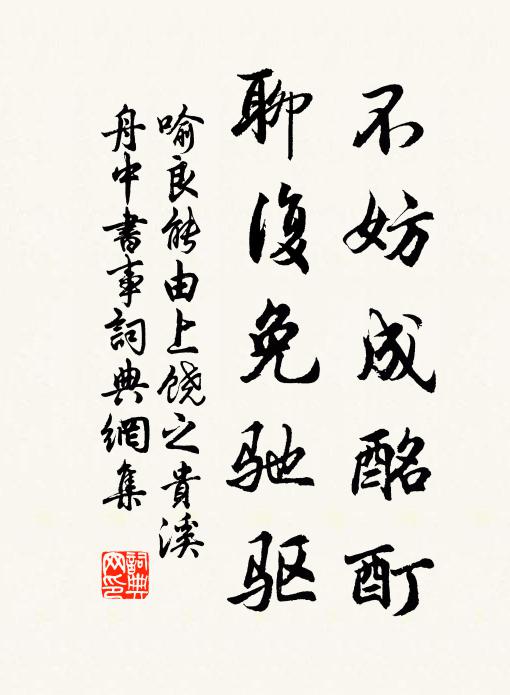 不妨成酩酊
聊復免驰驱
喻良能由上饶之貴溪
舟中書事詞典網集
詞典
网印